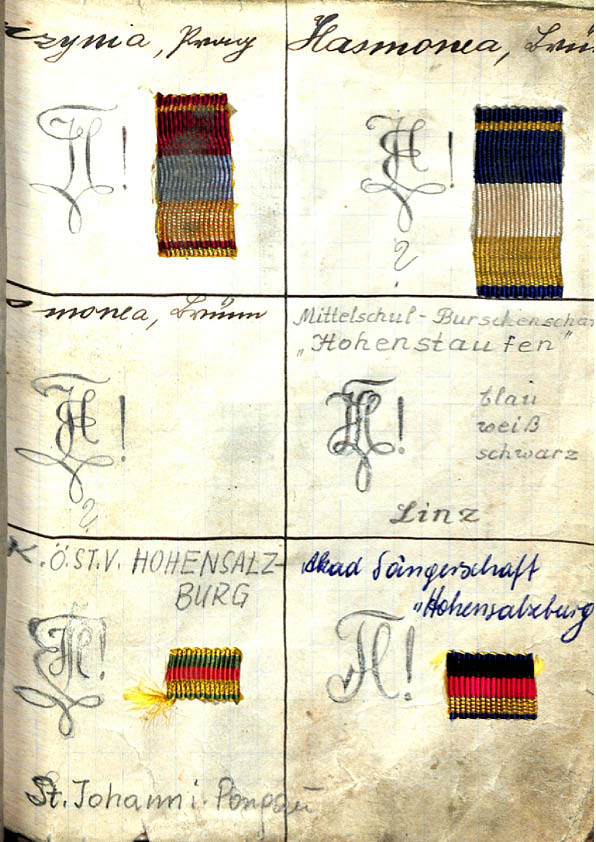 zynia, Prag
Hasmonea, Brün
!
!
?
monea, Brünn
!
?
Mittelschul-Burschenschaf
„Hohenstaufen"
!
blau
weiß
schwarz
Linz
K.Ö.ST.V. HOHENSALZ-
BURG
!
St. Johann i. Pongau
Akad Sängerschaft
„Hohensalzburg
!